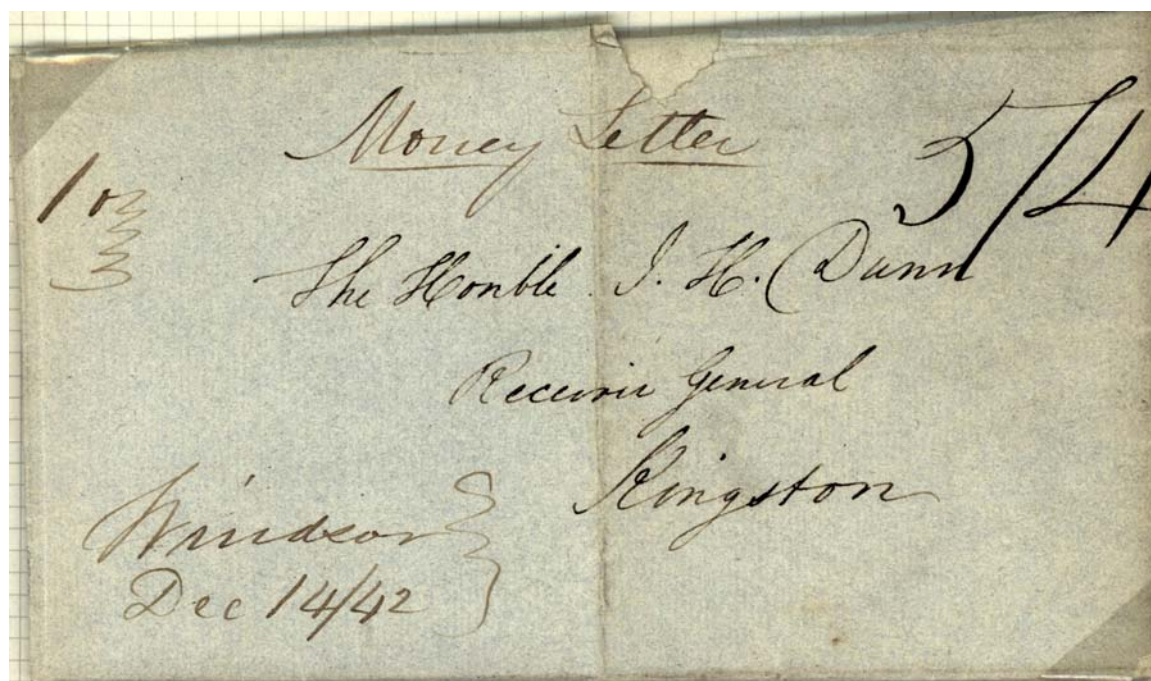 Money Letter
5/4
1 oz
The Honble J. H. Dunn
Receiver General
Kingston
Windsor
Dec 14/42